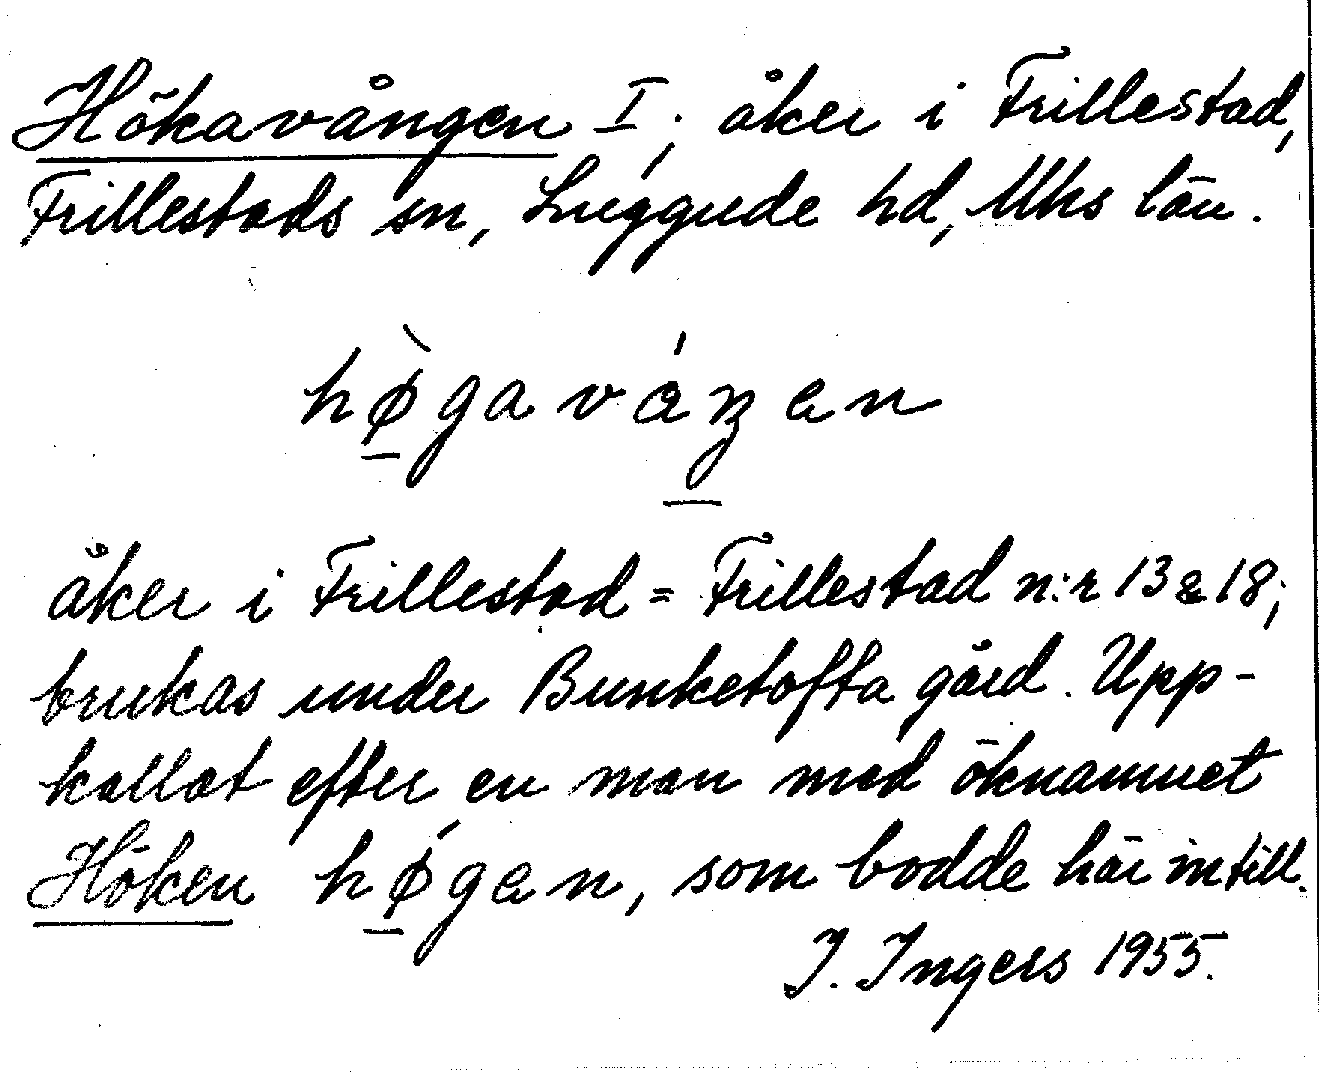 Hökavången I; åker i Frillestad,
Frillestads sn, Luggude hd, Mhs län.
hø̀gaváŋen
åker i Frillestad = Frillestad n:r 13 & 18;
brukas under Bunketofta gård. Upp-
kallat efter en man med öknamnet
Höken hǿgen, som bodde här intill.
I. Ingers 1955.